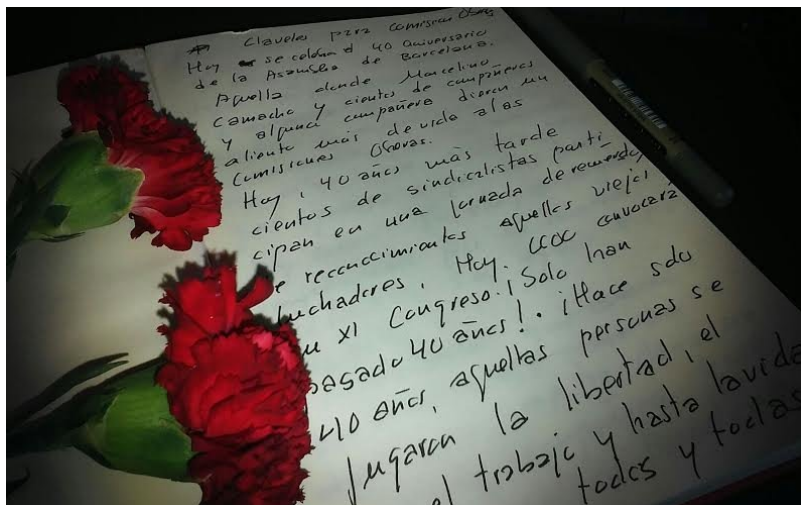 Claveles para Comisiones Obreras
Hoy se celebra el 40 aniversario
de la Asamblea de Barcelona.
Aquella donde Marcelino
Camacho y cientos de compañeros
y alguna compañera dieron un
aliento más de vida a las
Comisiones Obreras.
Hoy, 40 años más tarde
cientos de sindicalistas parti
cipan en una jornada de recuerdo
e reconocimientos aquellos viejos
luchadores, Hoy. CCOO convocará
su XI Congreso. ¡Solo han
pasado 40 años!. ¡Hace solo
40 años, aquellas personas se
jugaron la libertad, el
el trabajo y hasta la vida
todos y todas